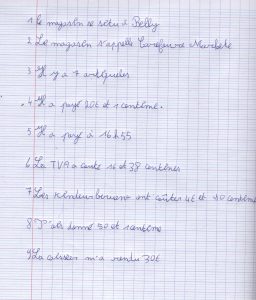 1 le magasin se situ à Belley
2 Le magasin s'appelle Carefoure Markete
3 Il y a 7 artiqueles
4 Il a payé 20€ et 1 centime.
5 Il a payé à 16h55
6 La TVA a couté 1€ et 38 centimes
7 Les Kinder bueno ont coûter 4€ et 90 centime
8 J'ais donné 50 et 1 centime
9 La caissier m'a rendu 30€